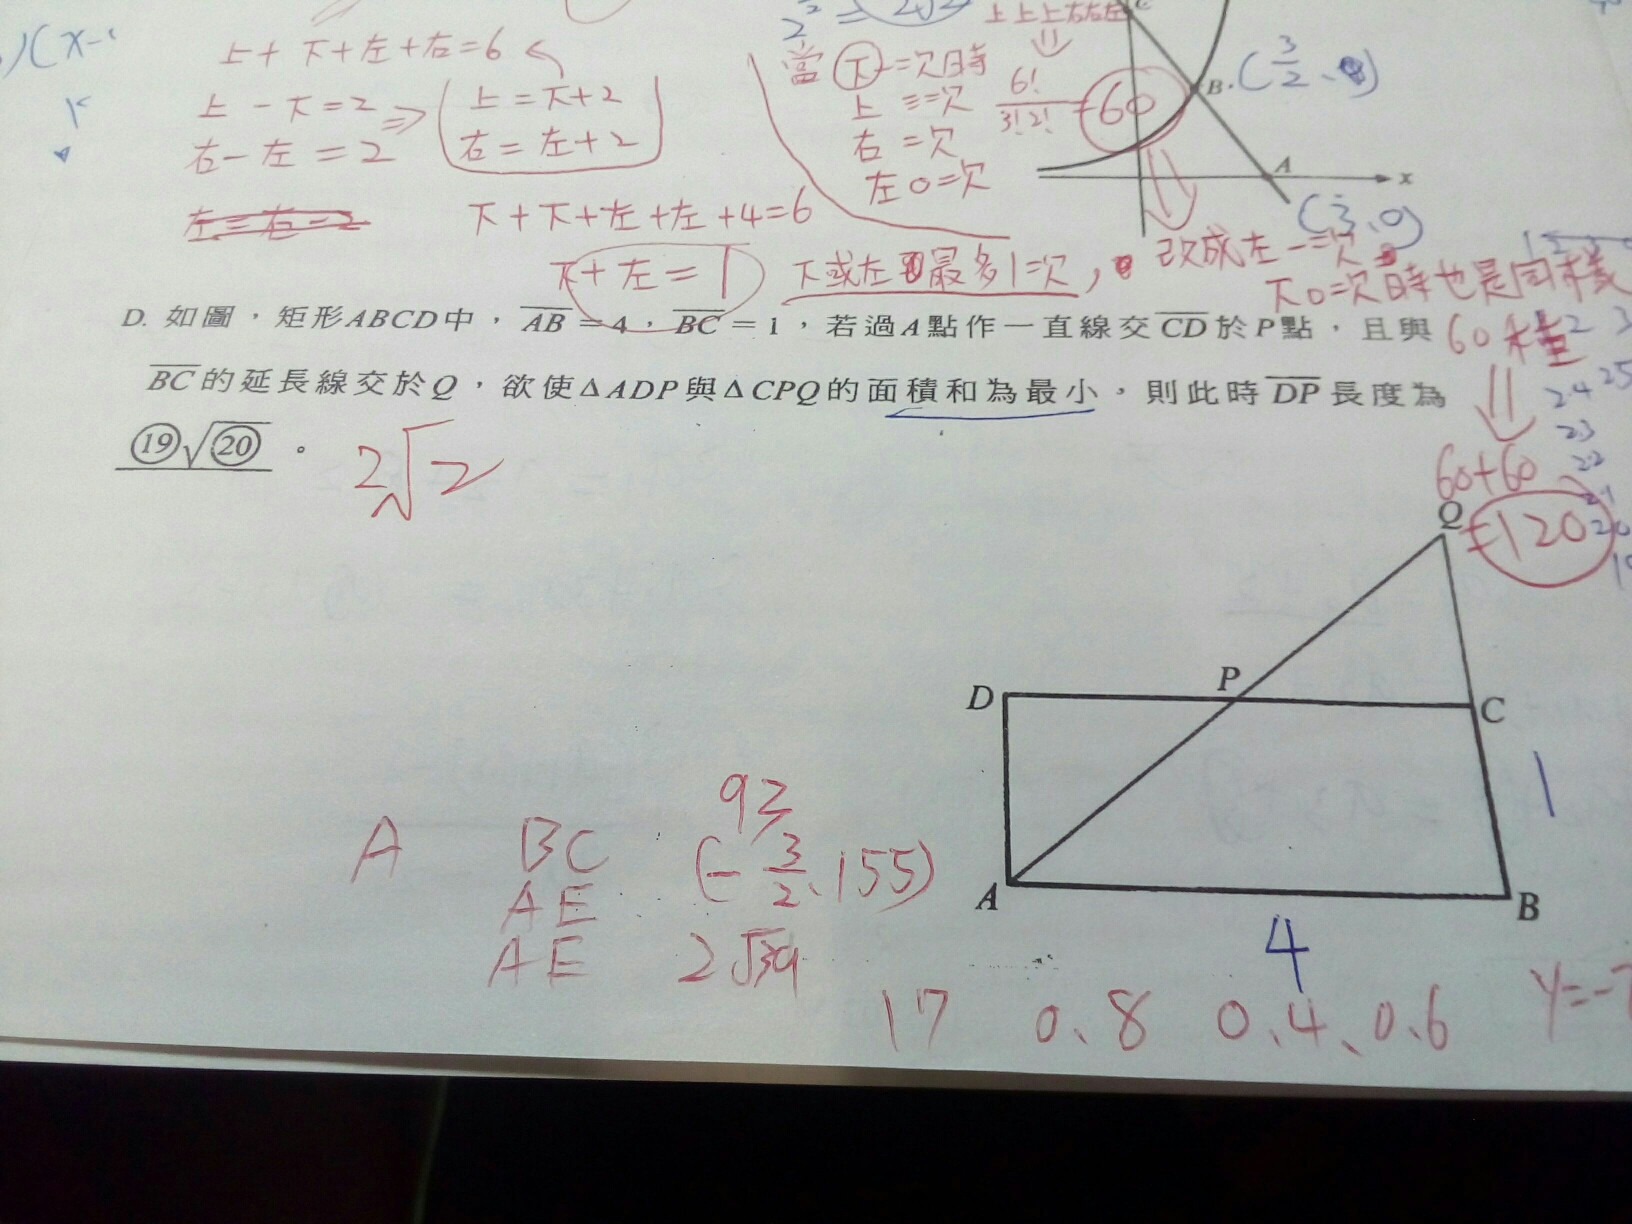 上+下+左+右=6
上-下=2 ⇒ 上=下+2
右-左=2 右=左+2
下+下+左+左+4=6
下+左=1
當下一次時
上三次
右二次
左0次
上上上右右左
6!/3!2!=60
下或左最多1次,
改成左一次
下0次時也是同樣
60種
60+60
=120
C
B (3/2、
A
x
(3、0)
D. 如圖,矩形ABCD中,AB=4,BC=1,若過A點作一直線交CD於P點,且與
BC的延長線交於Q,欲使ΔADP與ΔCPQ的面積和為最小,則此時DP長度為
⑲√⑳。 2√2
Q
D P C
1
A B
4
A BC 93
AE (-3/2、155)
AE 2√39
17 0、8 0、4、0、6 y=-7